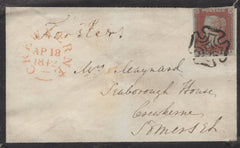 CREWKERNE
AP 18
1842
Mrs Maynard
Seaborough House
Crewkerne
Somerset